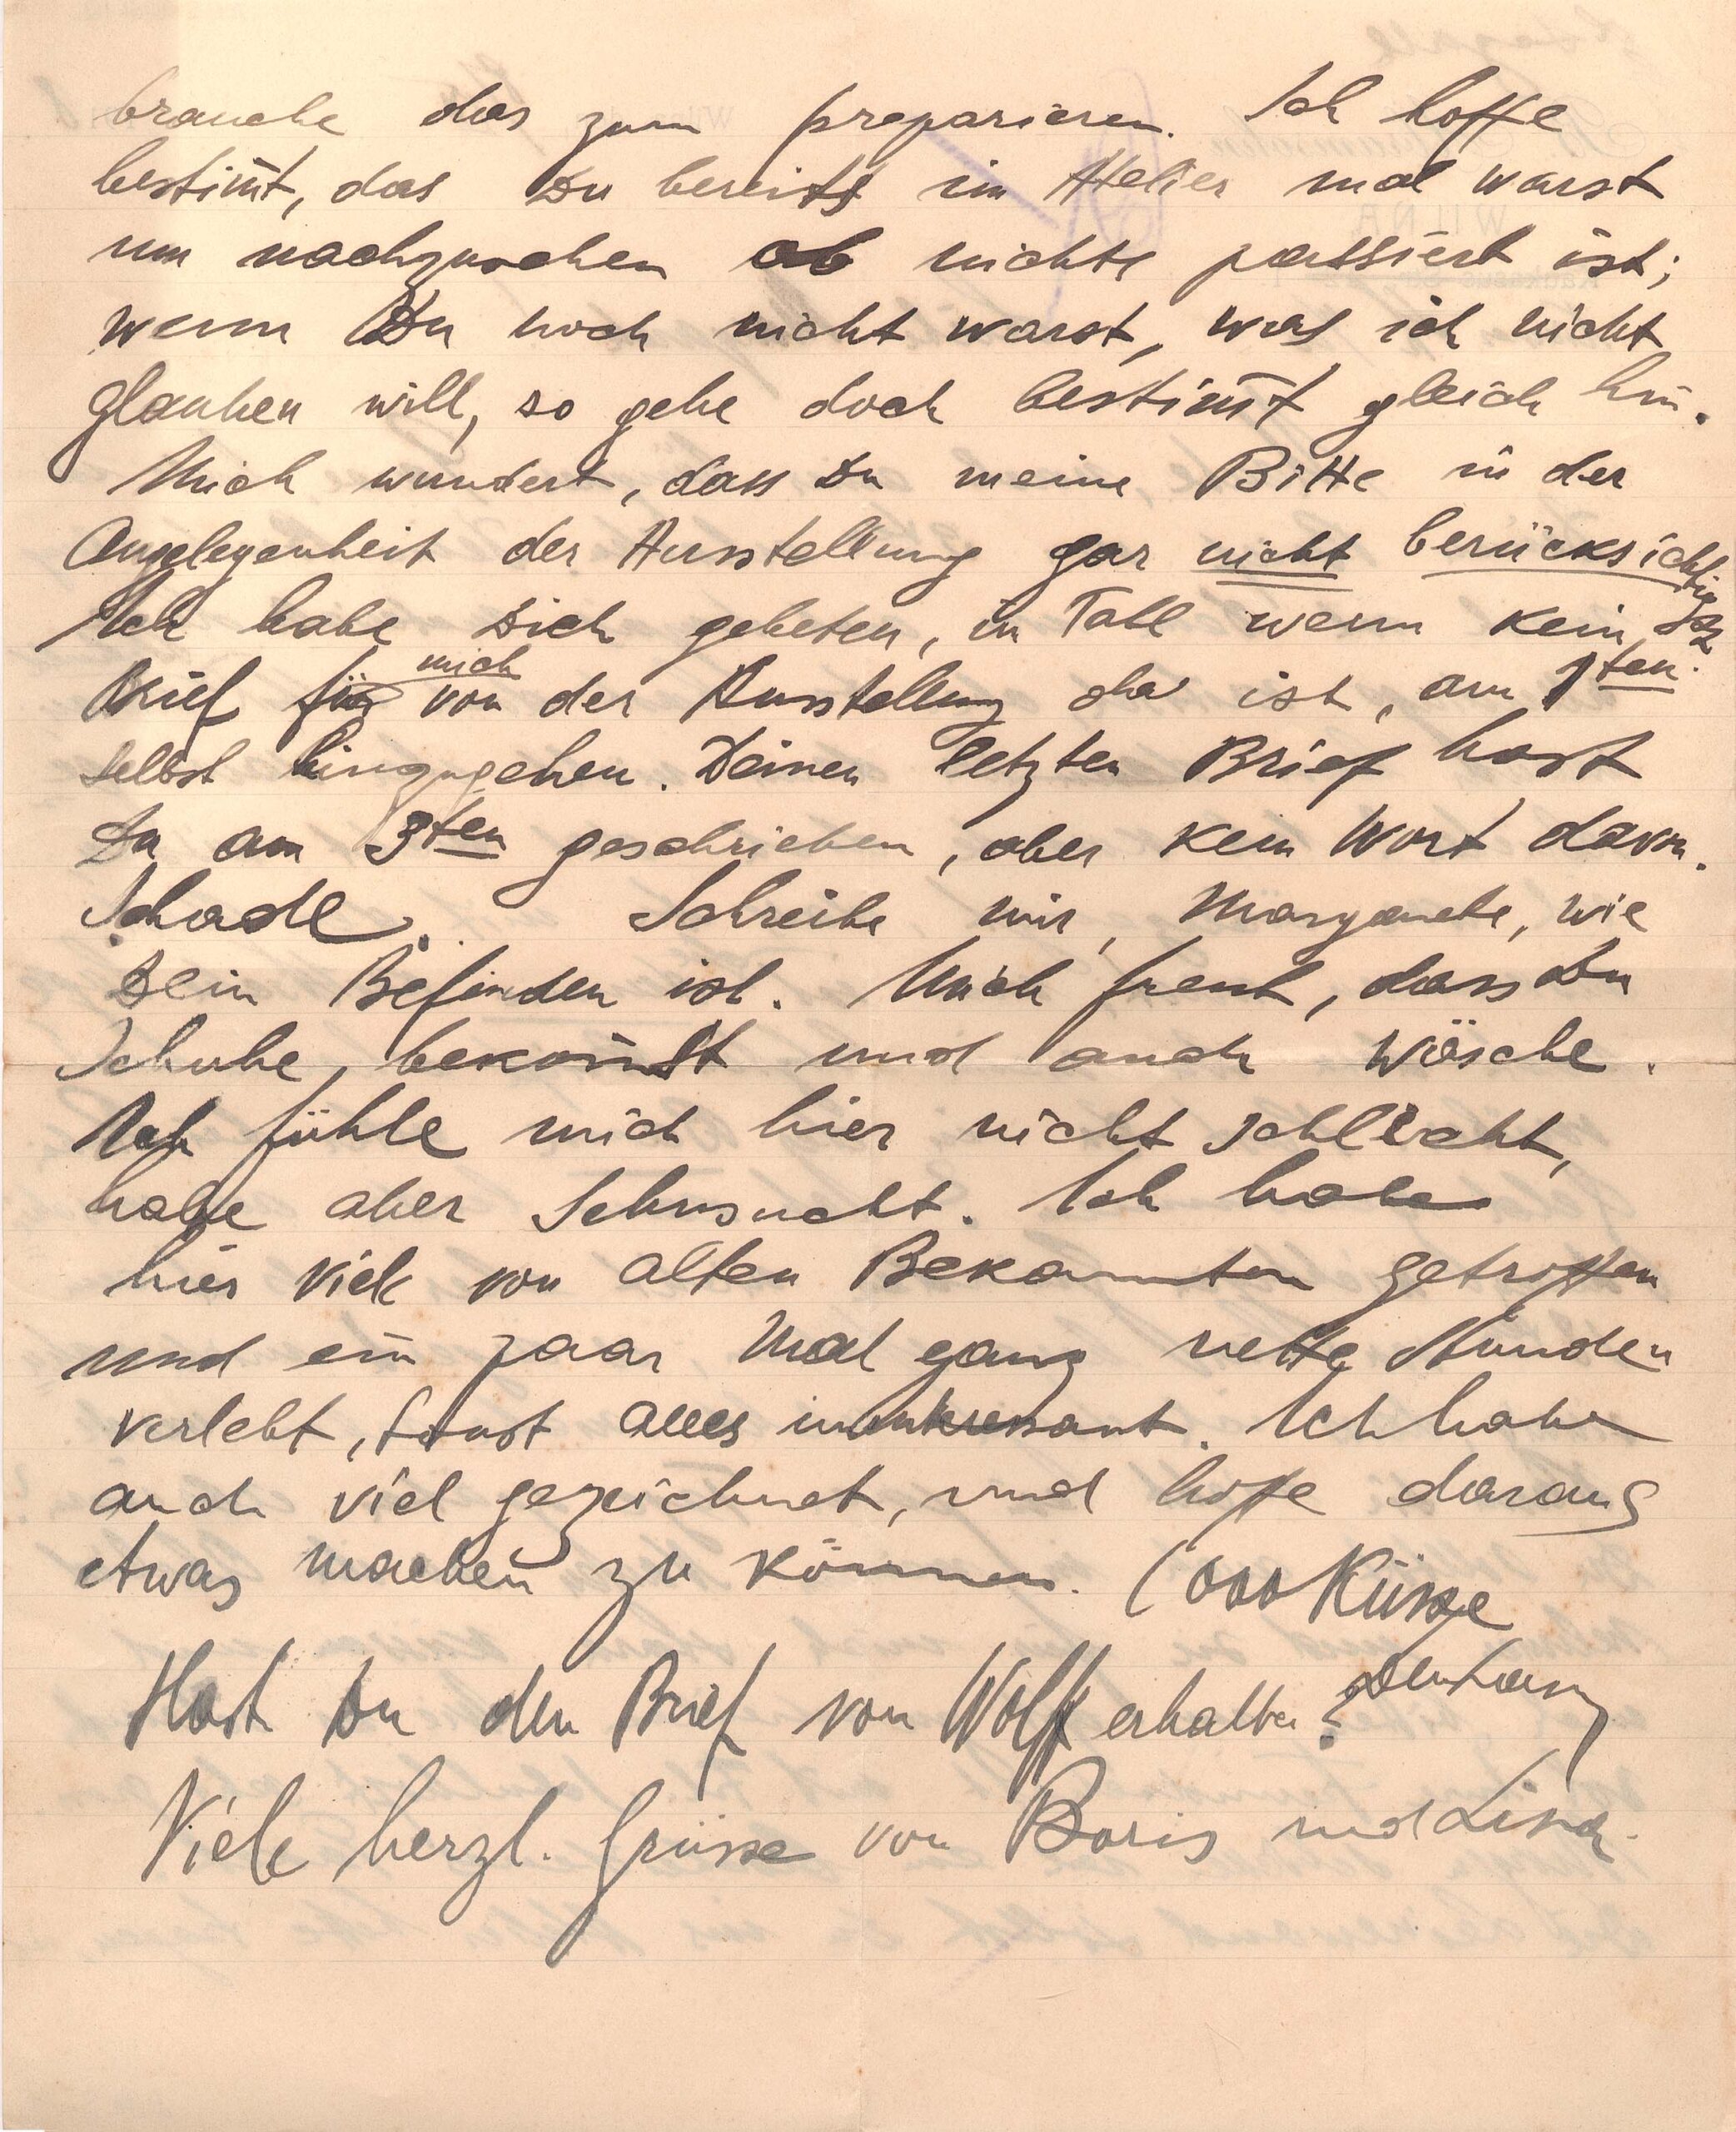 brauche das zum preparieren. Ich hoffe
bestim̅t, das Du bereits im Atelier mal warst
um nachzusehen ob nichts passiert ist;
wenn Du noch nicht warst, was ich nicht
glauben will, so gehe doch bestim̅t gleich hin.
Mich wundert, dass Du meine Bitte in der
Angelegenheit der Ausstellung gar nicht berücksichtigst
Ich habe Dich gebeten, in Fall wenn kein
Brief für mich von der Ausstellung da ist, am 1ten.
selbst hinzugehen. Deinen letzten Brief hast
Du am 3ten geschrieben, aber kein Wort davon.
Schade. Schreibe mir, Margarete, wie
Dein Befinden ist. Mich freut, dass Du
Schuhe, bekom̅st und auch Wäsche.
Ich fühle mich hier nicht schlecht,
habe aber Sehnsucht. Ich habe
hier viele von alten Bekannten getroffen
und ein paar Mal ganz nette Stunden
verlebt, sonst alles uninteresant. Ich habe
auch viel gezeichnet, und hoffe daraus
etwas machen zu können. 1000 Küsse
Hast Du den Brief von Wolff erhalten?
Viele herzl. Grüsse von Boris und Lina.